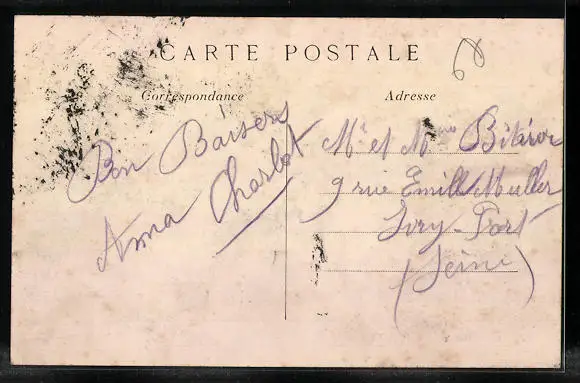 CARTE POSTALE
Correspondance
Adresse
Bon Baisers
Anna Charlot
Mr et Mme
9 rue Emill Muller
Ivry-Port
(Seine)